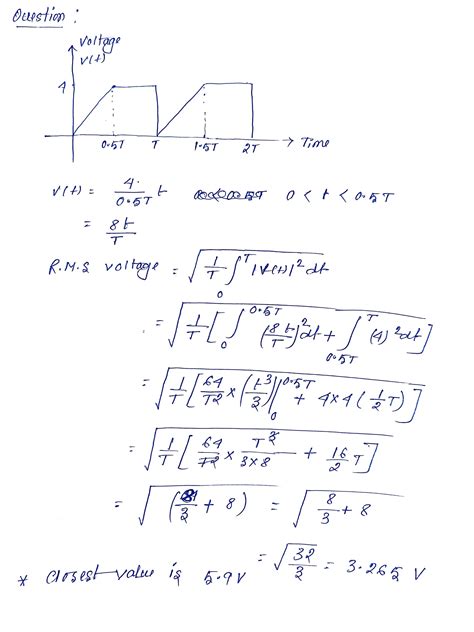 Question :
Voltage
V(t)
4
0.5T T 1.5T 2T → Time
V(t) = 4/0.5T t 0 < t < 0.5T
= 8t/T
R.M.S voltage = √(1/T ∫₀ᵀ |V(t)|² dt)
= √(1/T [∫₀^0.5T (8t/T)² dt + ∫_0.5T^T (4)² dt])
= √(1/T [64/T2 × (t³/3)|₀^0.5T + 4×4 (1/2 T)])
= √(1/T [64/T2 × T³/3×8 + 16/2 T])
= √(8/3 + 8) = √(8/3 + 8)
= √(32/3) = 3.265 V
* closest value is 5.9V